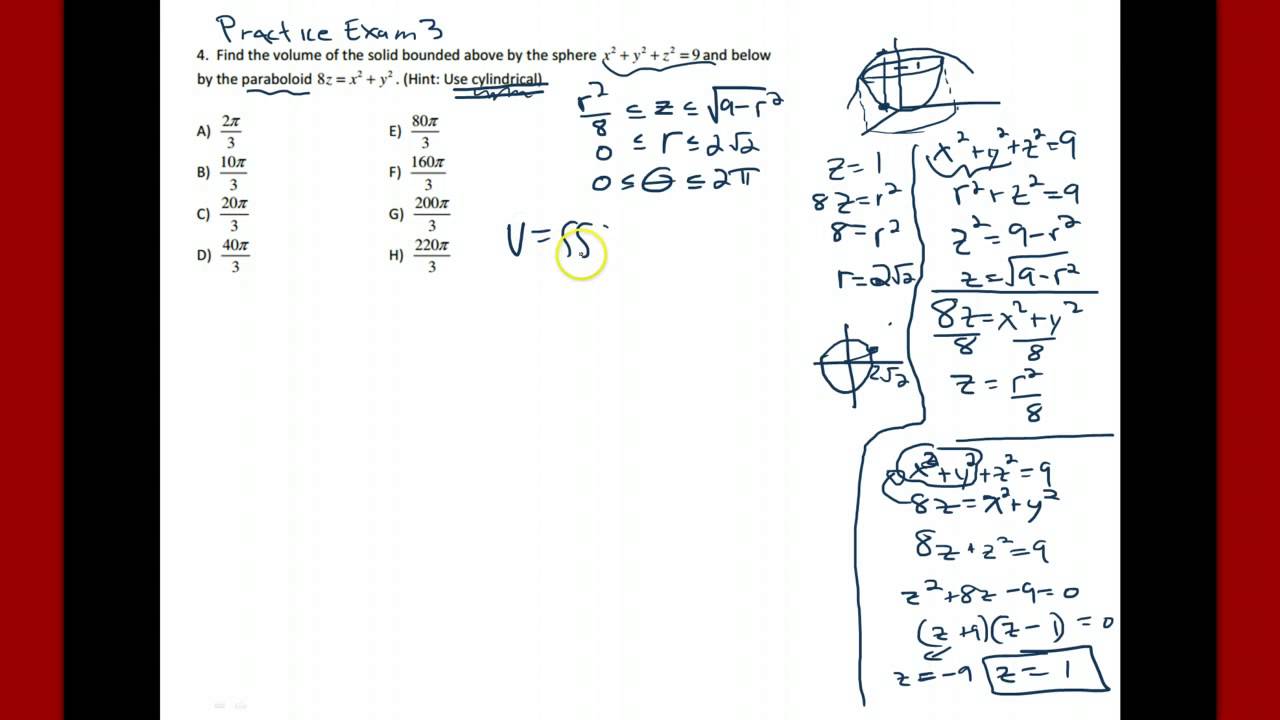 Practice Exam 3
4. Find the volume of the solid bounded above by the sphere x² + y² + z² = 9 and below
by the paraboloid 8z = x² + y². (Hint: Use cylindrical)
A) 2π/3
B) 10π/3
C) 20π/3
D) 40π/3
E) 80π/3
F) 160π/3
G) 200π/3
H) 220π/3
r²/8 ≤ z ≤ √9-r²
0 ≤ r ≤ 2√2
0 ≤ θ ≤ 2π
V = ∫∫
1
z = 1
8z = r²
8 = r²
r = 2√2
2√2
x² + y² + z² = 9
r² + z² = 9
z² = 9 - r²
z = √9-r²
8z/8 = x² + y²/8
z = r²/8
x² + y² + z² = 9
8z = x² + y²
8z + z² = 9
z² + 8z - 9 = 0
(z + 9)(z - 1) = 0
z = -9 z = 1